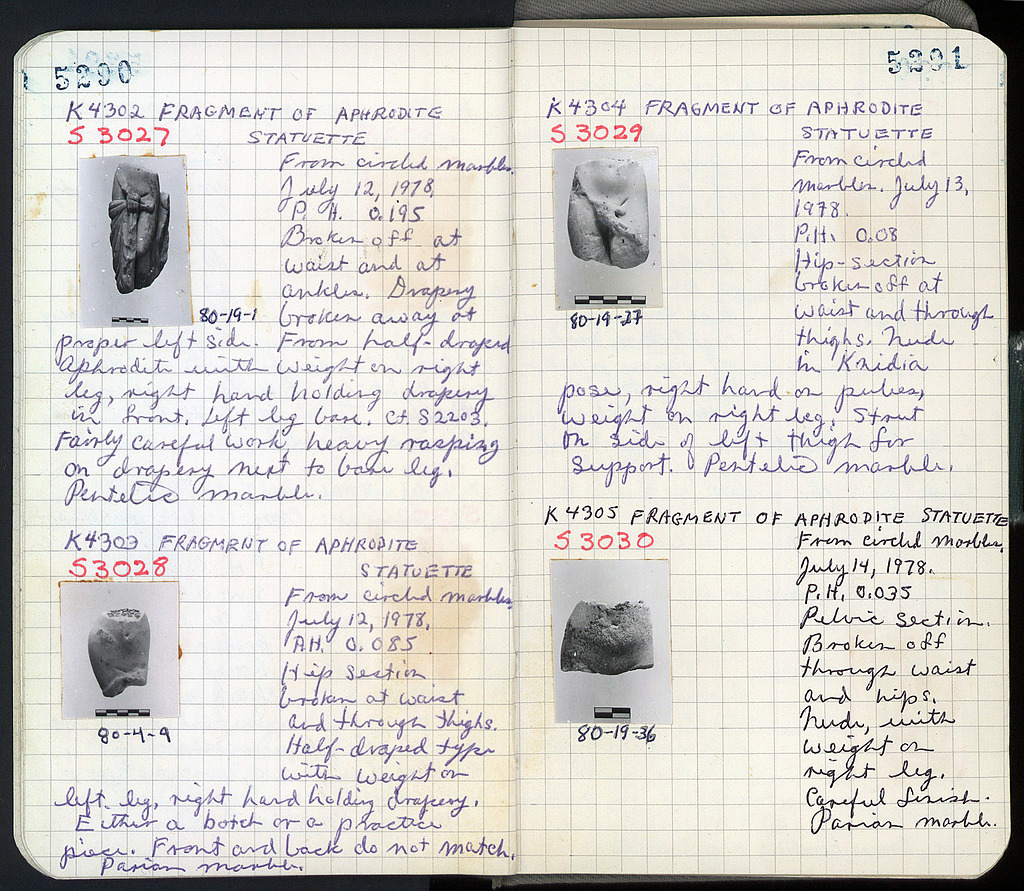 5290
K4302 FRAGMENT OF APHRODITE
S 3027 STATUETTE
From circled marbles.
July 12, 1978.
P. H. 0.195
Broken off at
waist and at
ankles. Drapery
80-19-1 broken away at
proper left side. From half-draped
Aphrodite with weight on right
leg, right hand holding drapery
in front. Left leg bare. Cf. S2203.
Fairly careful work, heavy rasping
on drapery next to bare leg.
Pentelic marble.
K4303 FRAGMENT OF APHRODITE
S3028 STATUETTE
From circled marbles
July 12, 1978.
P.H. 0.085
Hip section
broken at waist
and through thighs.
80-4-9
Half-draped type
with weight on
left leg, right hand holding drapery.
Either a botch or a practice
piece. Front and back do not match.
Parian marble.
5291
K4304 FRAGMENT OF APHRODITE
S 3029 STATUETTE
From circled
marbles. July 13,
1978.
P.H. 0.08
Hip-section
broken off at
80-19-37 waist and through
thighs. Nude
in Knidia
pose, right hand on pubes,
weight on right leg. Strut
on side of left thigh for
support. Pentelic marble.
K4305 FRAGMENT OF APHRODITE STATUETTE
S 3030 From circled marbles.
July 14, 1978.
P.H. 0.035
Pelvic section.
Broken off
through waist
and hips.
80-19-36 Nude, with
weight on
right leg.
Careful finish.
Parian marble.